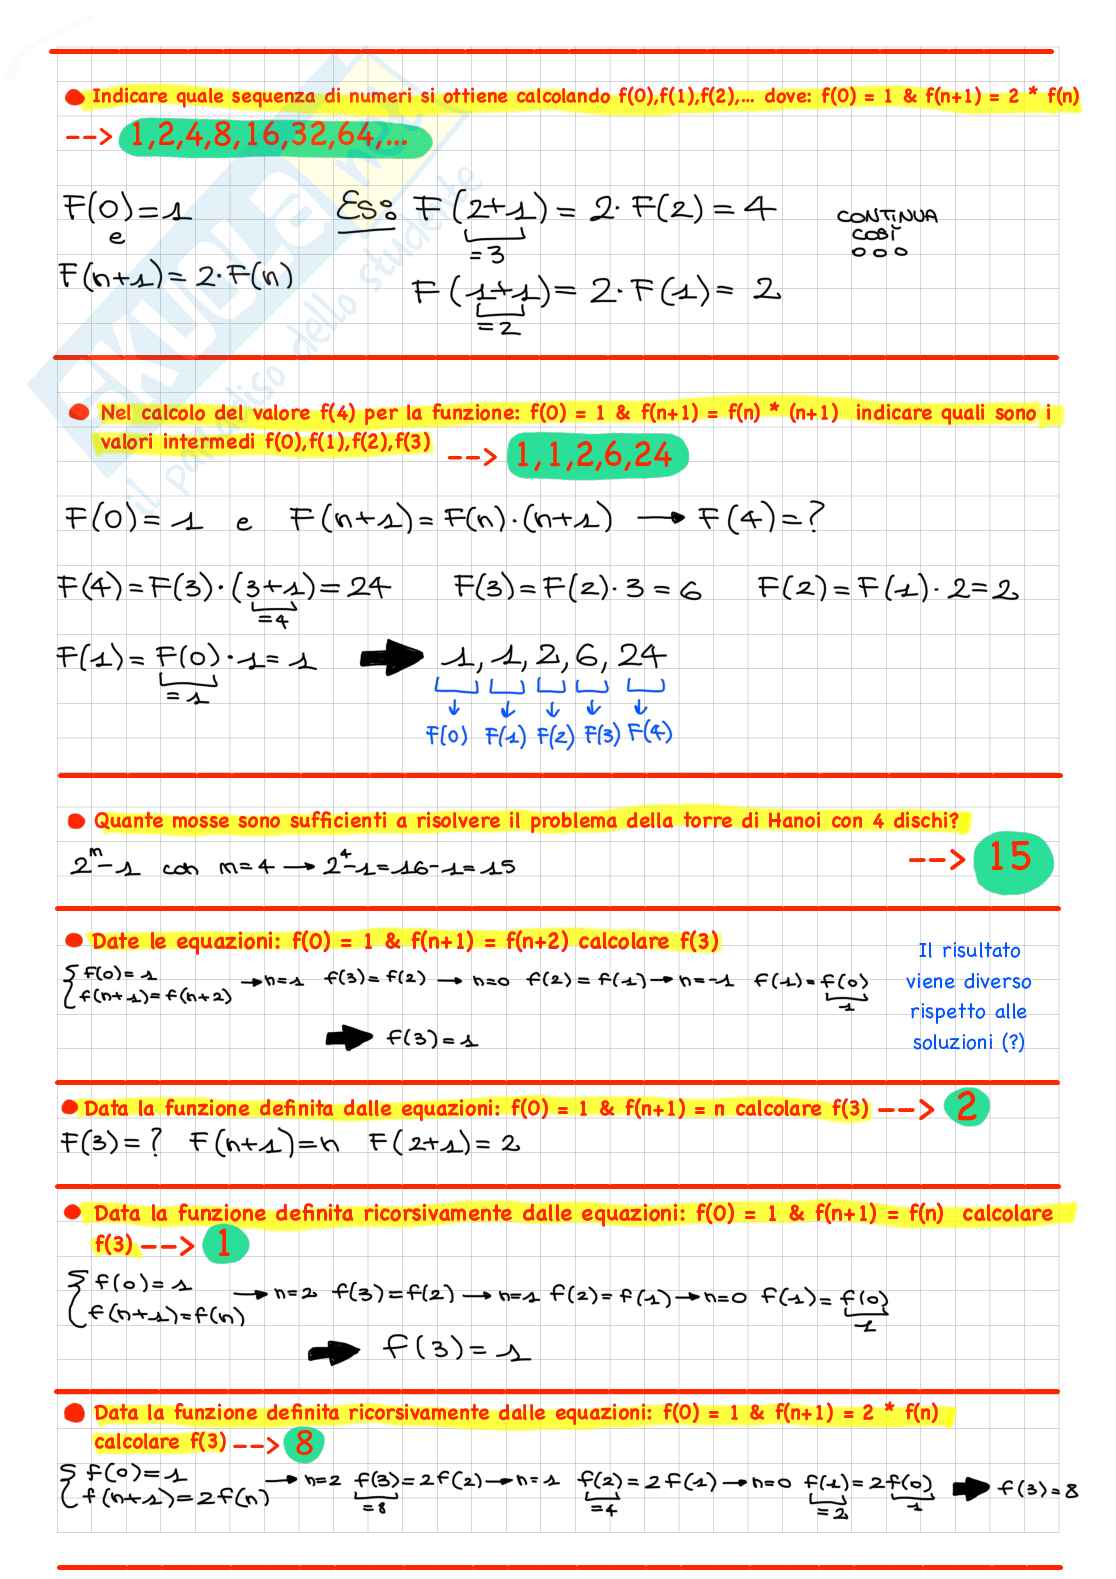 Indicare quale sequenza di numeri si ottiene calcolando f(0),f(1),f(2),... dove: f(0) = 1 & f(n+1) = 2 * f(n)
--> 1,2,4,8,16,32,64,...
F(0)=1
e
F(n+1)=2·F(n)
ES: F(2+1)=2·F(2)=4
=3
F(1+1)=2·F(1)=2
=2
CONTINUA
COSÌ
ooo
Nel calcolo del valore f(4) per la funzione: f(0) = 1 & f(n+1) = f(n) * (n+1) indicare quali sono i
valori intermedi f(0),f(1),f(2),f(3) --> 1,1,2,6,24
F(0)=1 e F(n+1)=F(n)·(n+1) → F(4)=?
F(4)=F(3)·(3+1)=24 F(3)=F(2)·3=6 F(2)=F(1)·2=2
=4
F(1)=F(0)·1=1 → 1, 1, 2, 6, 24
=1
F(0) F(1) F(2) F(3) F(4)
Quante mosse sono sufficienti a risolvere il problema della torre di Hanoi con 4 dischi?
--> 15
2^m-1 con m=4 → 2^4-1=16-1=15
Date le equazioni: f(0) = 1 & f(n+1) = f(n+2) calcolare f(3)
{f(0)=1
f(n+1)=f(n+2) → n=1 f(3)=f(2) → n=0 f(2)=f(1) → n=-1 f(1)=f(0)
1
→ f(3)=1
Il risultato
viene diverso
rispetto alle
soluzioni (?)
Data la funzione definita dalle equazioni: f(0) = 1 & f(n+1) = n calcolare f(3) --> 2
F(3)=? F(n+1)=n F(2+1)=2
Data la funzione definita ricorsivamente dalle equazioni: f(0) = 1 & f(n+1) = f(n) calcolare
f(3) --> 1
{f(0)=1
f(n+1)=f(n) → n=2 f(3)=f(2) → n=1 f(2)=f(1) → n=0 f(1)=f(0)
1
→ f(3)=1
Data la funzione definita ricorsivamente dalle equazioni: f(0) = 1 & f(n+1) = 2 * f(n)
calcolare f(3) --> 8
{f(0)=1
f(n+1)=2f(n) → n=2 f(3)=2f(2) → n=1 f(2)=2f(1) → n=0 f(1)=2f(0) → f(3)=8
=8 =4 =2 1
SKUOLA.net
il paradiso dello studente